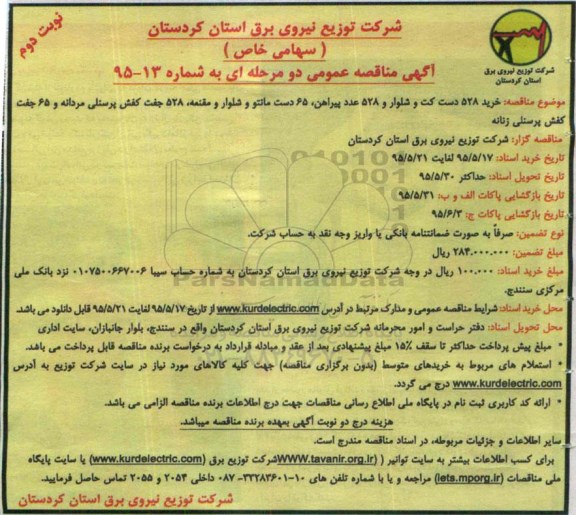 نوبت دوم
شرکت توزیع نیروی برق استان کردستان
( سهامی خاص )
آگهی مناقصه عمومی دو مرحله ای به شماره ۱۳-۹۵
شرکت توزیع نیروی برق
استان کردستان
موضوع مناقصه: خرید ۵۲۸ دست کت و شلوار و ۵۲۸ عدد پیراهن، ۶۵ دست مانتو و شلوار و مقنعه، ۵۲۸ جفت کفش پرسنلی مردانه و ۶۵ جفت
کفش پرسنلی زنانه
مناقصه گزار: شرکت توزیع نیروی برق استان کردستان
تاریخ خرید اسناد: ۹۵/۵/۱۷ لغایت ۹۵/۵/۲۱
تاریخ تحویل اسناد: حداکثر ۹۵/۵/۳۰
تاریخ بازگشایی پاکات الف و ب: ۹۵/۵/۳۱
تاریخ بازگشایی پاکات ج: ۹۵/۶/۳
نوع تضمین: صرفاً به صورت ضمانتنامه بانکی یا واریز وجه نقد به حساب شرکت.
مبلغ تضمین: ۲۸۴.۰۰۰.۰۰۰ ریال
مبلغ خرید اسناد: ۱۰۰.۰۰۰ ریال در وجه شرکت توزیع نیروی برق استان کردستان به شماره حساب سیبا ۰۱۰۷۵۰۰۶۶۷۰۰۶ نزد بانک ملی
مرکزی سنندج.
محل خرید اسناد: شرایط مناقصه عمومی و مدارک مرتبط در آدرس www.kurdelectric.com از تاریخ ۹۵/۵/۱۷ لغایت ۹۵/۵/۲۱ قابل دانلود می باشد.
محل تحویل اسناد: دفتر حراست و امور محرمانه شرکت توزیع نیروی برق استان کردستان واقع در سنندج، بلوار جانبازان، سایت اداری
* مبلغ پیش پرداخت حداکثر تا سقف ۱۵% مبلغ پیشنهادی بعد از عقد و مبادله قرارداد به درخواست برنده مناقصه قابل پرداخت می باشد.
* استعلام های مربوط به خریدهای متوسط (بدون برگزاری مناقصه) جهت کلیه کالاهای مورد نیاز در سایت شرکت توزیع به آدرس
www.kurdelectric.com درج می گردد.
* ارائه کد کاربری ثبت نام در پایگاه ملی اطلاع رسانی مناقصات جهت درج اطلاعات برنده مناقصه الزامی می باشد.
هزینه درج دو نوبت آگهی بعهده برنده مناقصه میباشد.
سایر اطلاعات و جزئیات مربوطه، در اسناد مناقصه مندرج است.
برای کسب اطلاعات بیشتر به سایت توانیر ( WWW.tavanir.org.ir) شرکت توزیع برق (www.kurdelectric.com) یا سایت پایگاه
ملی مناقصات (iets.mporg.ir) مراجعه و یا با شماره تلفن های ۱۰-۳۳۲۸۳۶۰۱-۰۸۷ داخلی ۲۰۵۴ و ۲۰۵۵ تماس حاصل فرمایید.
شرکت توزیع نیروی برق استان کردستان
ParsNamadData